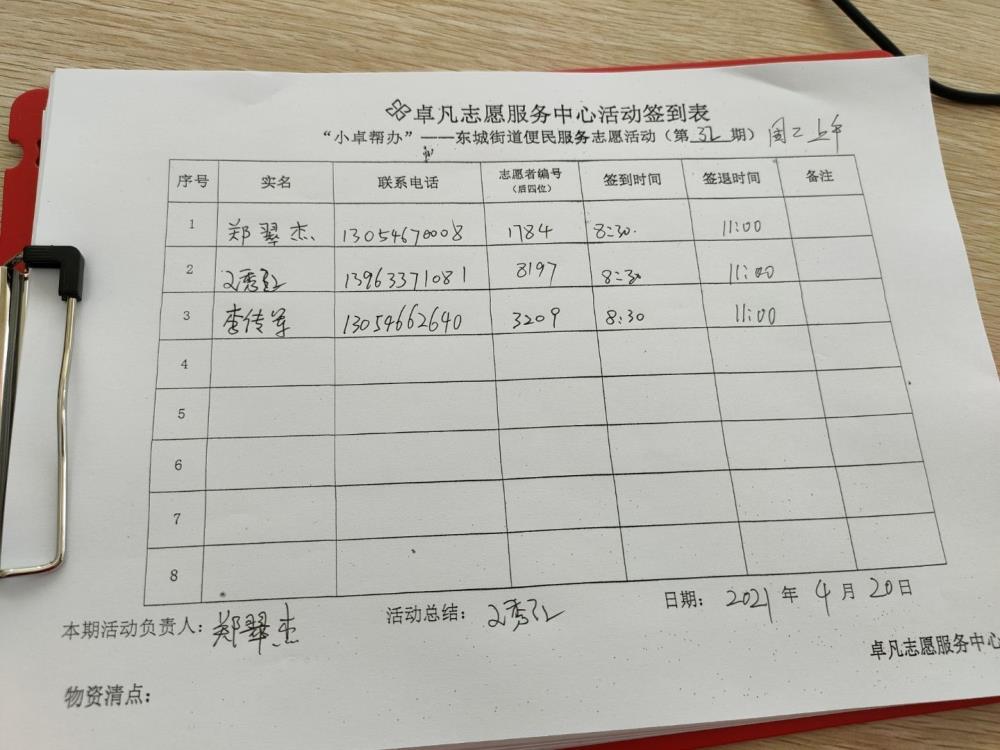 卓凡志愿服务中心活动签到表
“小卓帮办”——东城街道便民服务志愿活动（第 32 期）周二上午
序号 实名 联系电话 志愿者编号（后四位） 签到时间 签退时间 备注
1 郑翠杰 13054670008 1784 8:30. 11:00
2 13963371081 8197 8:30 11:00
3 李传军 13054662640 3209 8:30 11:00
4
5
6
7
8
本期活动负责人：郑翠杰 活动总结： 日期：2021年4月20日
卓凡志愿服务中心
物资清点：